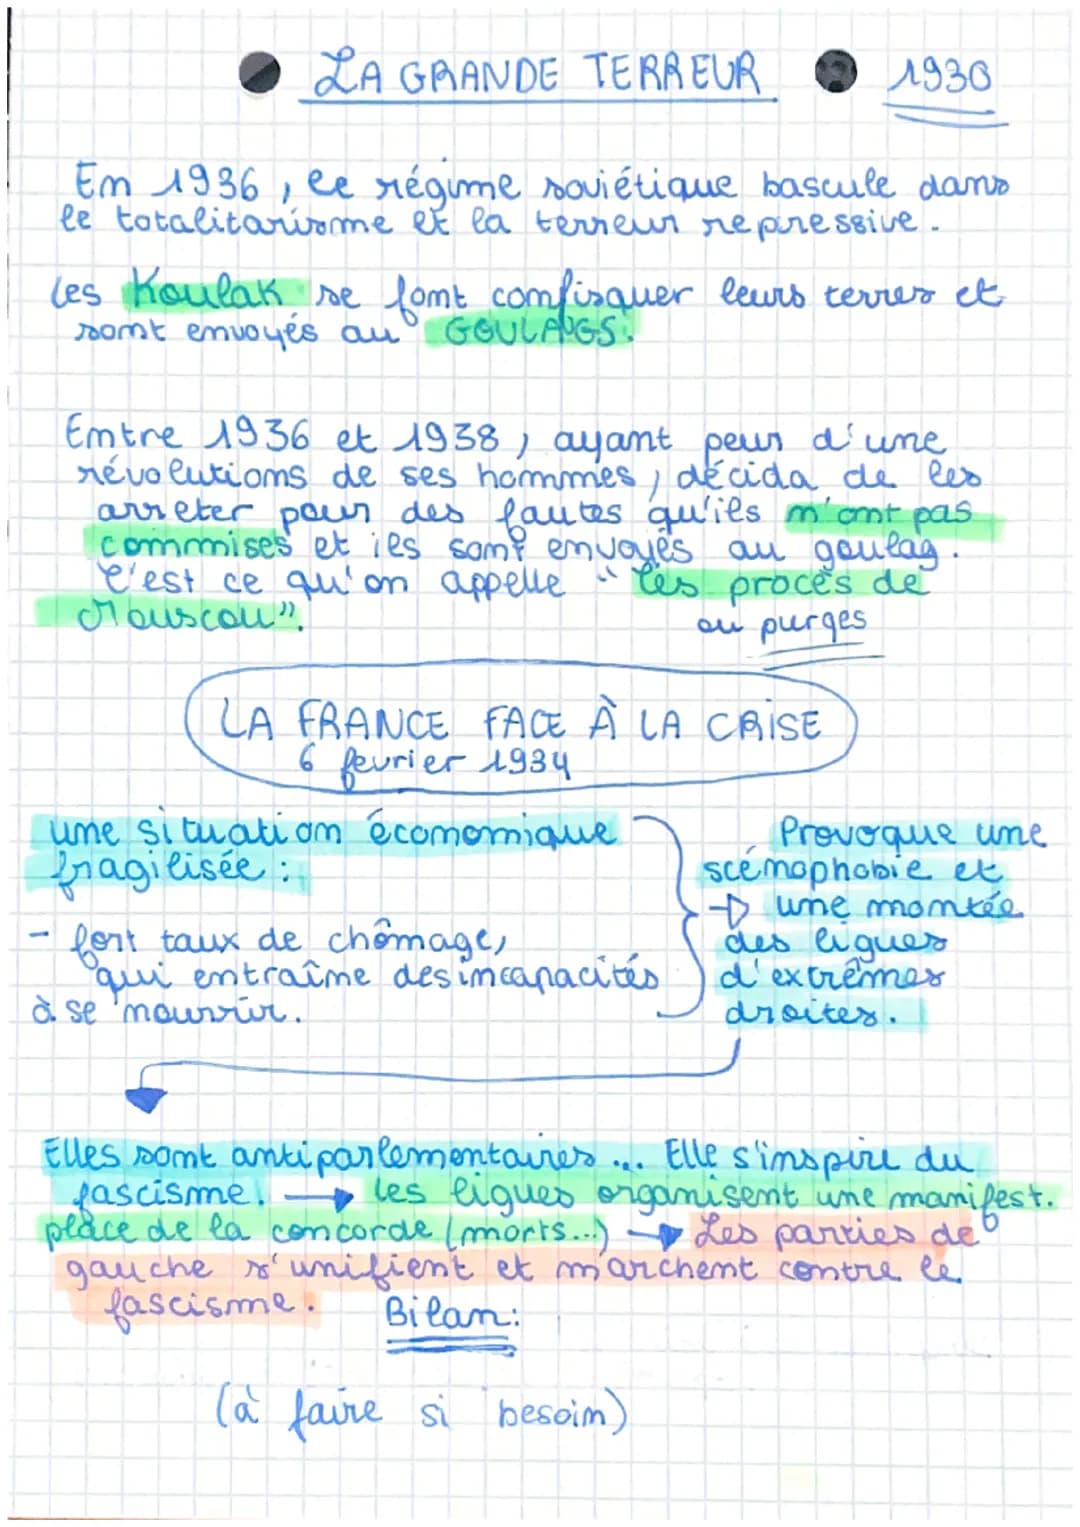 LA GRANDE TERREUR 1930
En 1936, le régime soviétique bascule dans
le totalitarisme et la terreur repressive.
les Koulak se font confisquer leurs terres et
sont envoyés au GOULAGS.
Entre 1936 et 1938, ayant peur d'une
révolutions de ses hommes, décida de les
arreter pour des fautes qu'ils n'ont pas
commises et ils sont envoyés au goulag.
C'est ce qu'on appelle "les procès de
Mouscou".
ou purges
LA FRANCE FACE À LA CRISE
6 fevrier 1934
une situation économique
fragilisée :
- fort taux de chômage,
qui entraîne des incapacités
à se nourrir.
Provoque une
scénophobie et
→ une montée
des ligues
d'extrêmes
droites.
Elles sont antiparlementaires... Elle s'inspire du
fascisme. → les ligues organisent une manifest.
place de la concorde (morts...) → Les parties de
gauche s'unifient et marchent contre le
fascisme.
Bilan:
(à faire si besoin)